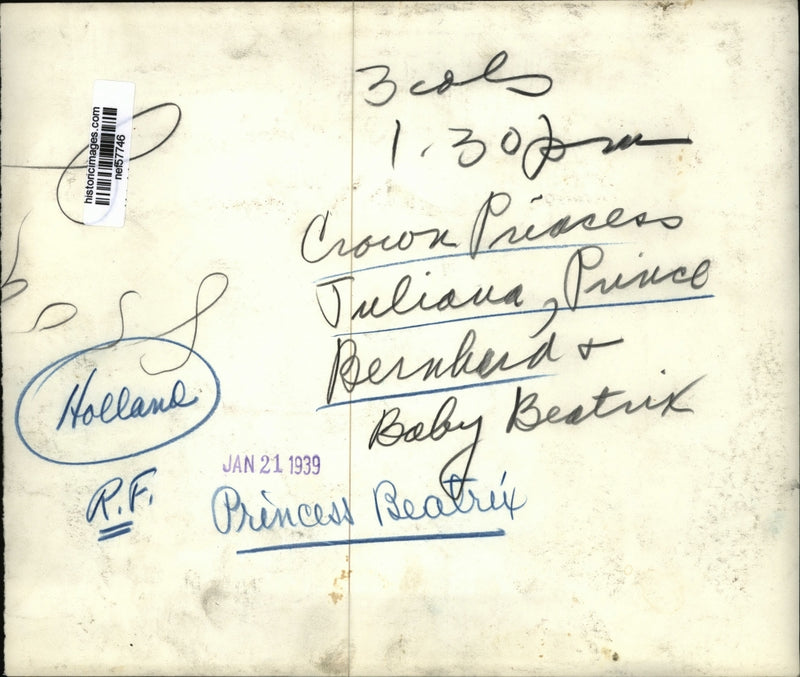 3 cols
1.30 pm
historicimages.com
nef57746
Crown Princess
Juliana, Prince
Bernhard &
Baby Beatrix
Holland
JAN 21 1939
R.F.
Princess Beatrix